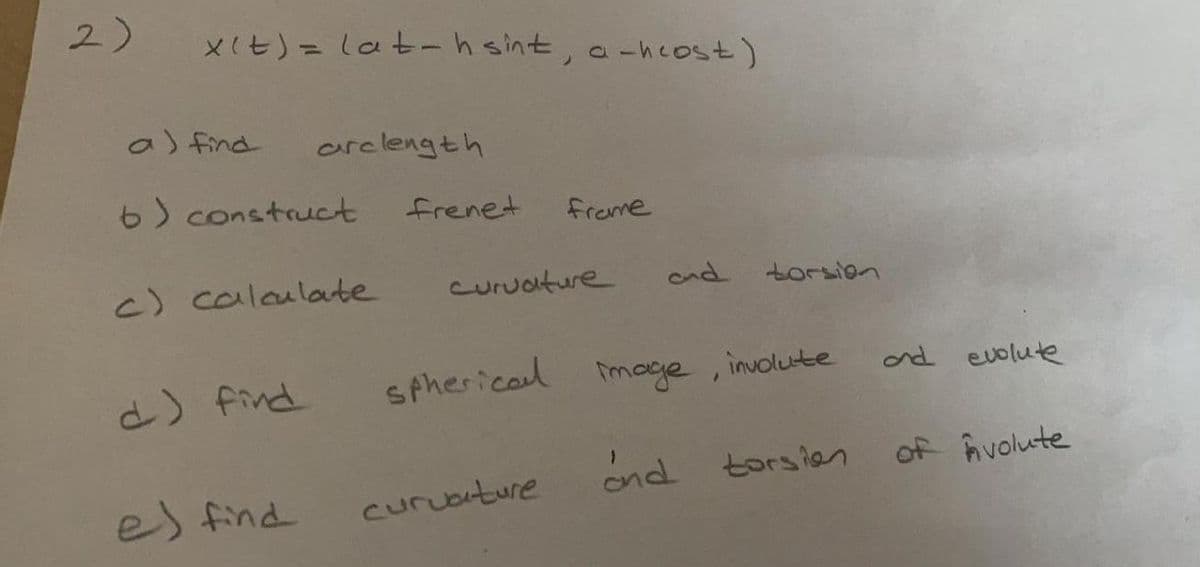 2) x(t) = (at - h sint, a - hcost)
a) find arclength
b) construct frenet frame
c) calculate curvature and torsion
d) find spherical image, involute and evolute
e) find curvature and torsion of involute